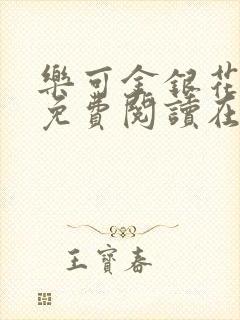 樂可金銀花
免費閱讀在
王寶春